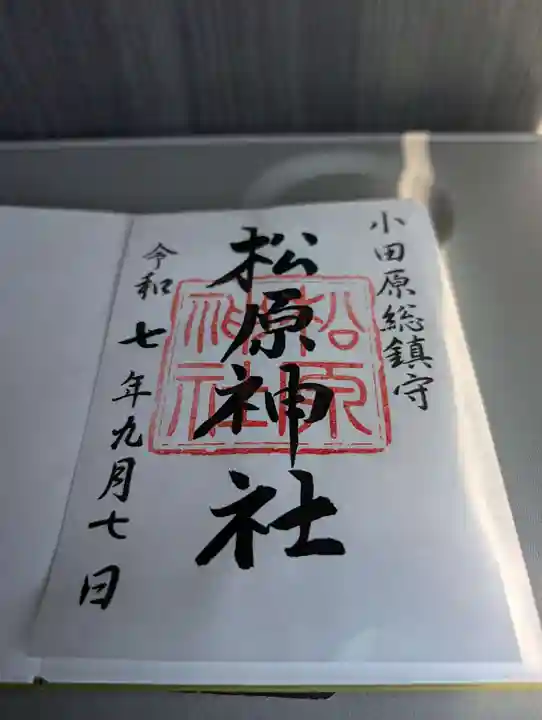 小田原総鎮守
松原神社
松原
神社
令和七年九月七日